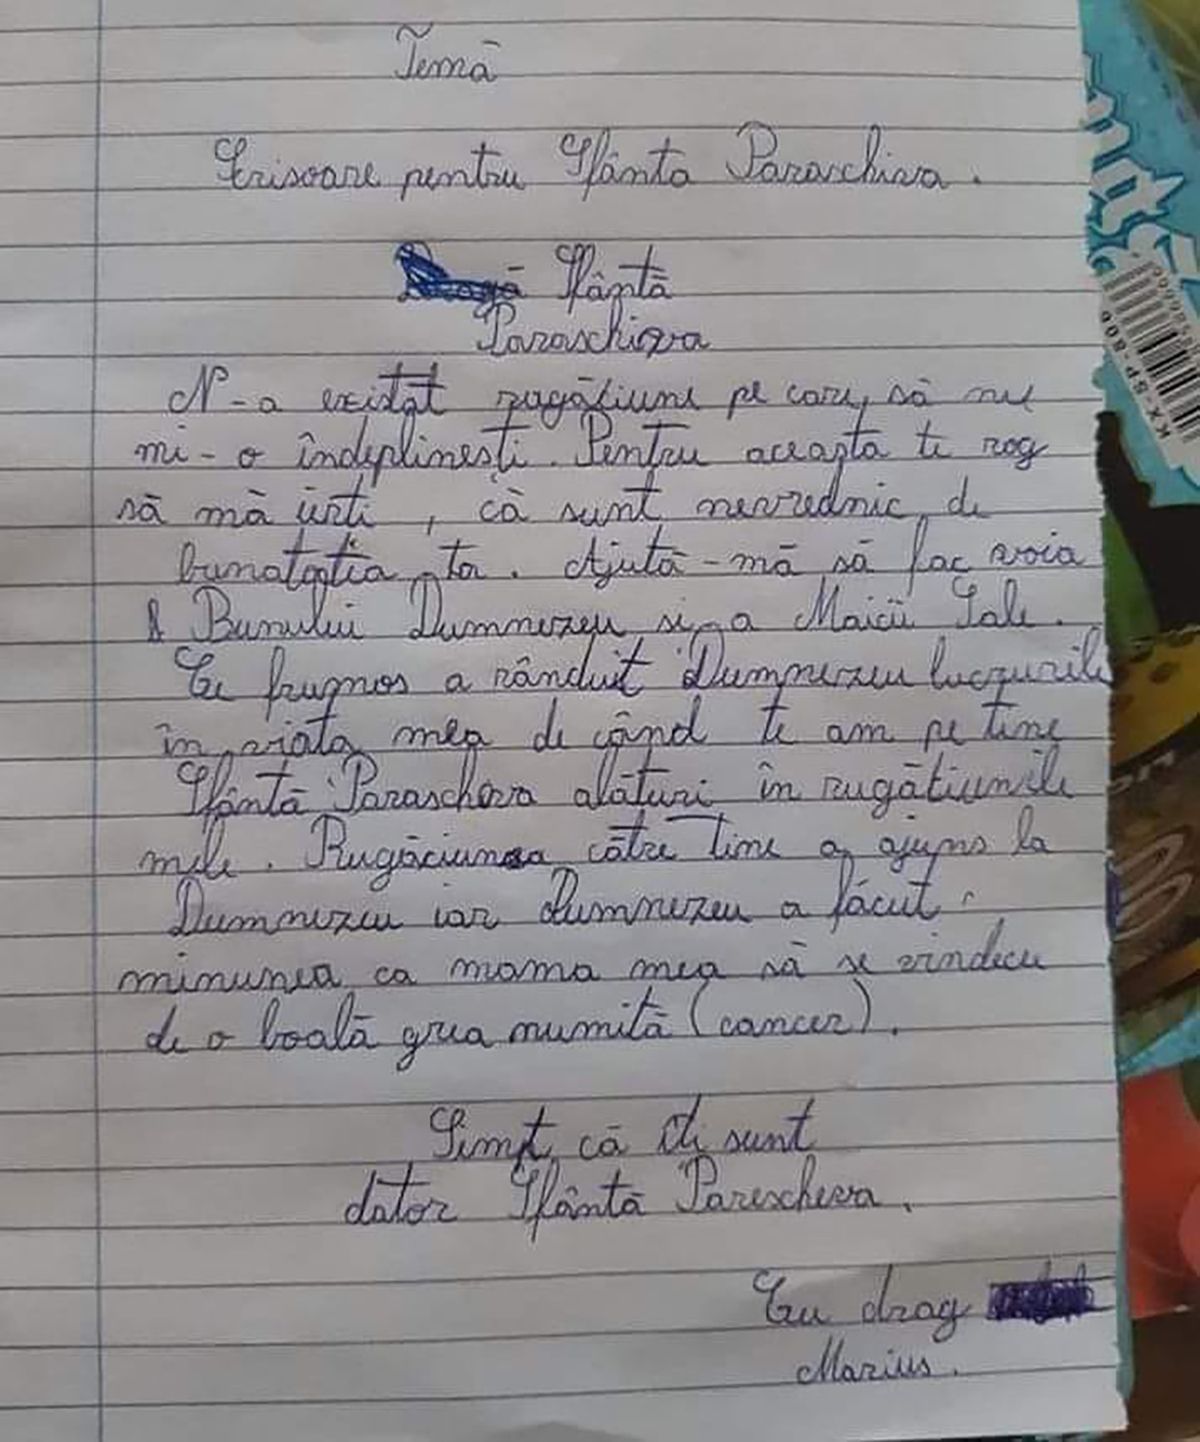 Temă
Scrisoare pentru Sfânta Paraschiva.
Sfântă
Paraschiva
N-a existat rugățiune pe care să nu
mi-o îndeplinești. Pentru aceasta te rog
să mă ierti, că sunt nevrednic de
bunatatia ta. Ajută-mă să fac voia
Bunului Dumnezeu si a Maicii Sale.
Ce frumos a rânduit Dumnezeu lucrurile
în viata mea de când te am pe tine
Sfântă Parascheva alături în rugătiunile
mele. Rugăciunea către tine a ajuns la
Dumnezeu iar Dumnezeu a făcut
minunea ca mama mea să se vindece
de o boală grea numită (cancer).
Simt că iti sunt
dator Sfântă Parescheva.
Cu drag
Marius.
KX-SP-806